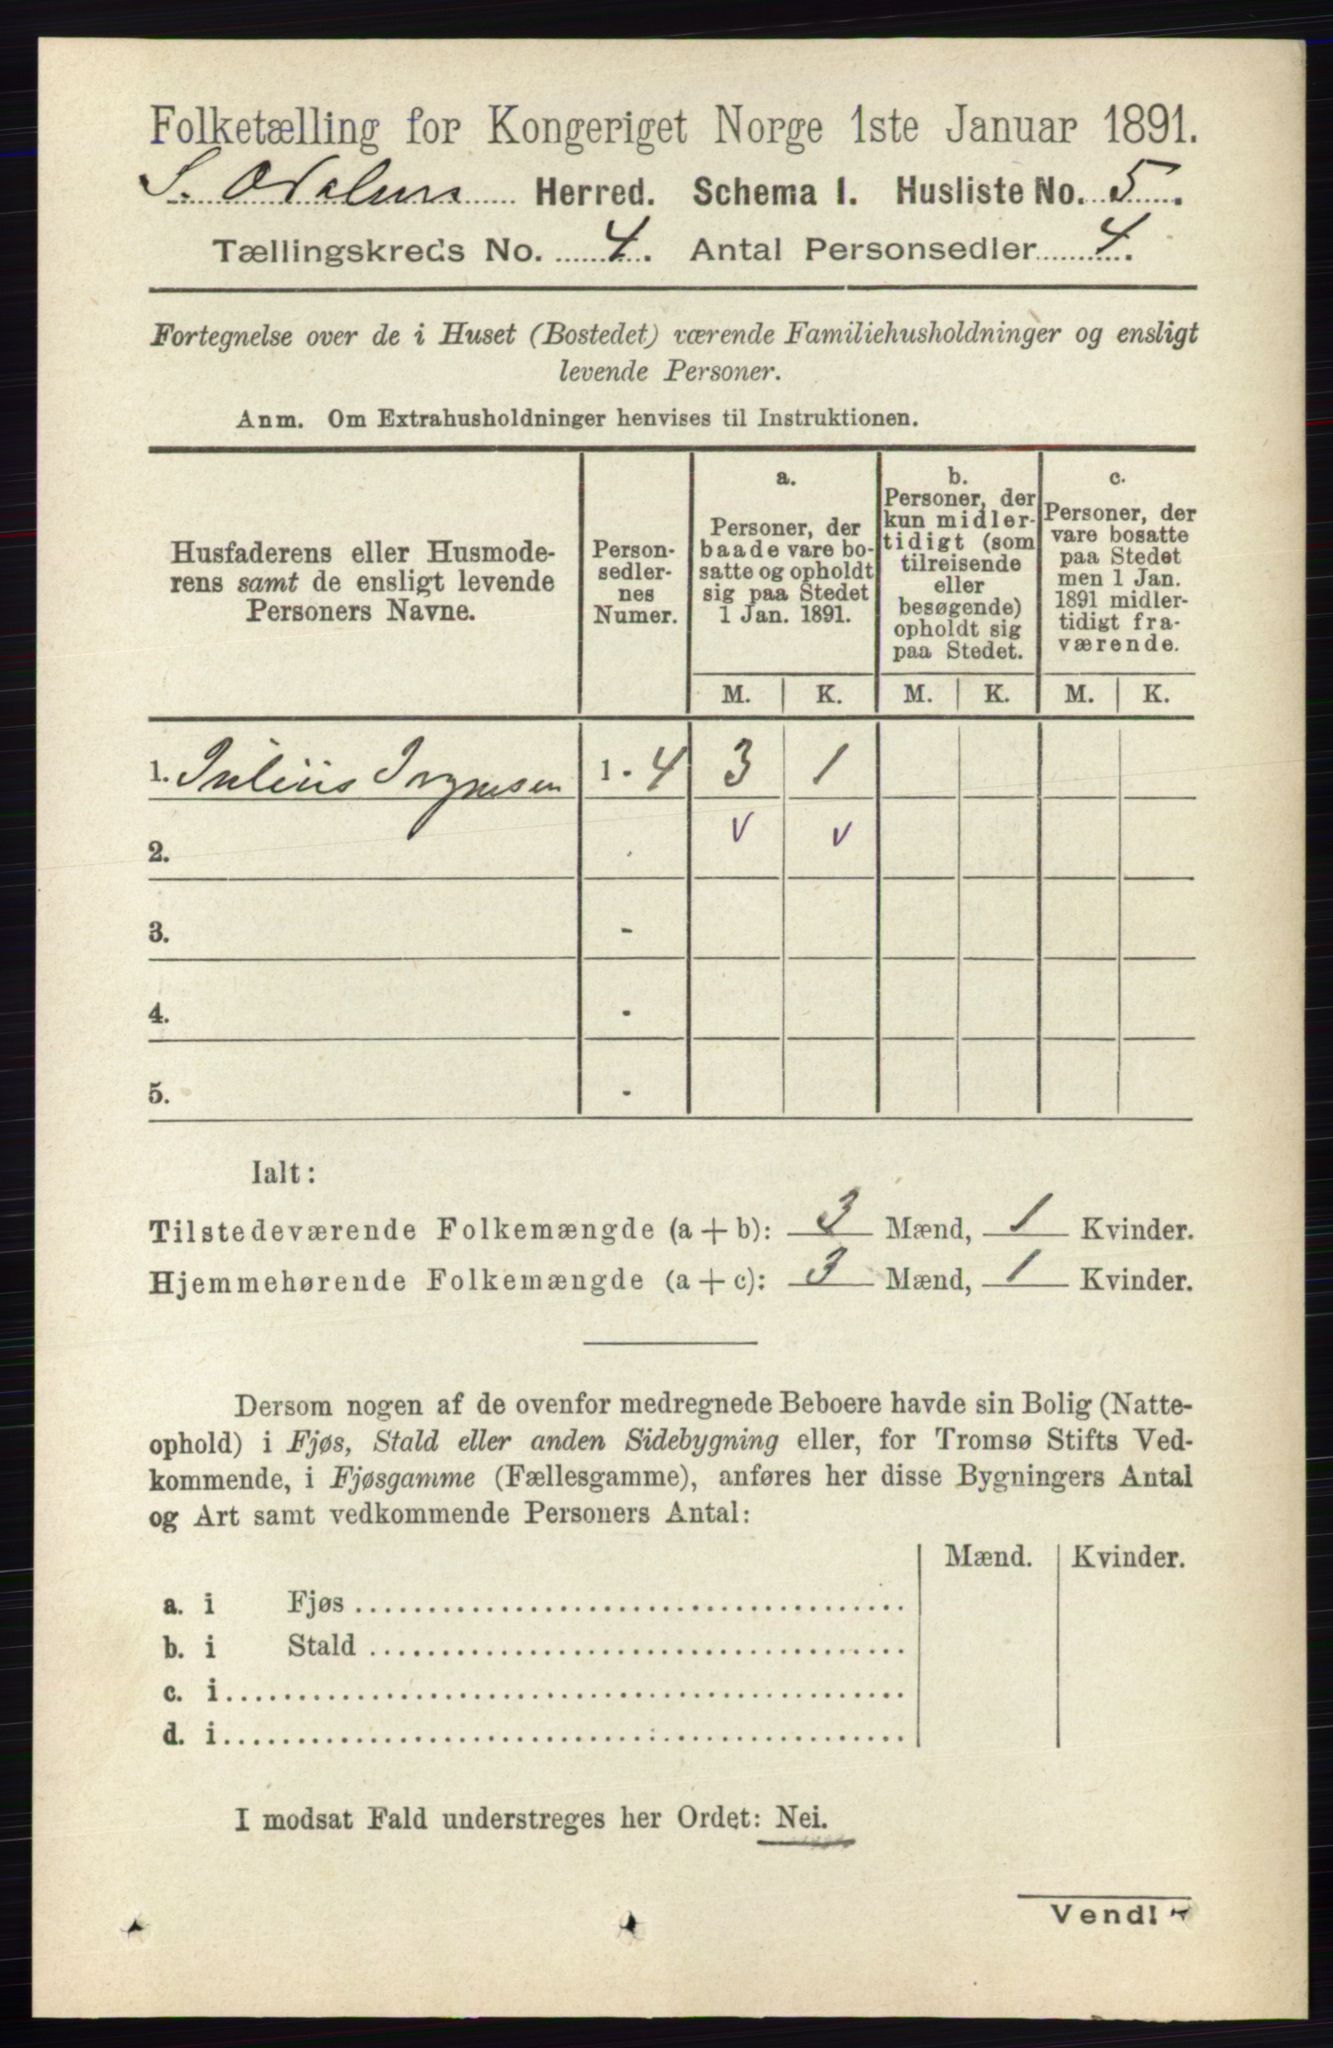 Folketælling for Kongeriget Norge 1ste Januar 1891.
S. Odalen Herred. Schema I. Husliste No. 5.
Tællingskreds No. 4. Antal Personsedler 4.
Fortegnelse over de i Huset (Bostedet) værende Familiehusholdninger og ensligt
levende Personer.
Anm. Om Extrahusholdninger henvises til Instruktionen.
Husfaderens eller Husmode-
rens samt de ensligt levende
Personers Navne.
Person-
sedler-
nes
Numer.
a.
Personer, der
baade vare bo-
satte og opholdt
sig paa Stedet
1 Jan. 1891.
b.
Personer, der
kun midler-
tidigt (som
tilreisende
eller
besøgende)
opholdt sig
paa Stedet.
c.
Personer, der
vare bosatte
paa Stedet
men 1 Jan.
1891 midler-
tidigt fra-
værende.
M. K. M. K. M. K.
1. Julius 1 - 4 3 1
2. v v
3. -
4. -
5. -
Ialt:
Tilstedeværende Folkemængde (a + b): 3 Mænd, 1 Kvinder.
Hjemmehørende Folkemængde (a + c): 3 Mænd, 1 Kvinder.
Dersom nogen af de ovenfor medregnede Beboere havde sin Bolig (Natte-
ophold) i Fjøs, Stald eller anden Sidebygning eller, for Tromsø Stifts Ved-
kommende, i Fjøsgamme (Fællesgamme), anføres her disse Bygningers Antal
og Art samt vedkommende Personers Antal:
Mænd. Kvinder.
a. i Fjøs
b. i Stald
c. i
d. i
I modsat Fald understreges her Ordet: Nei.
Vend!